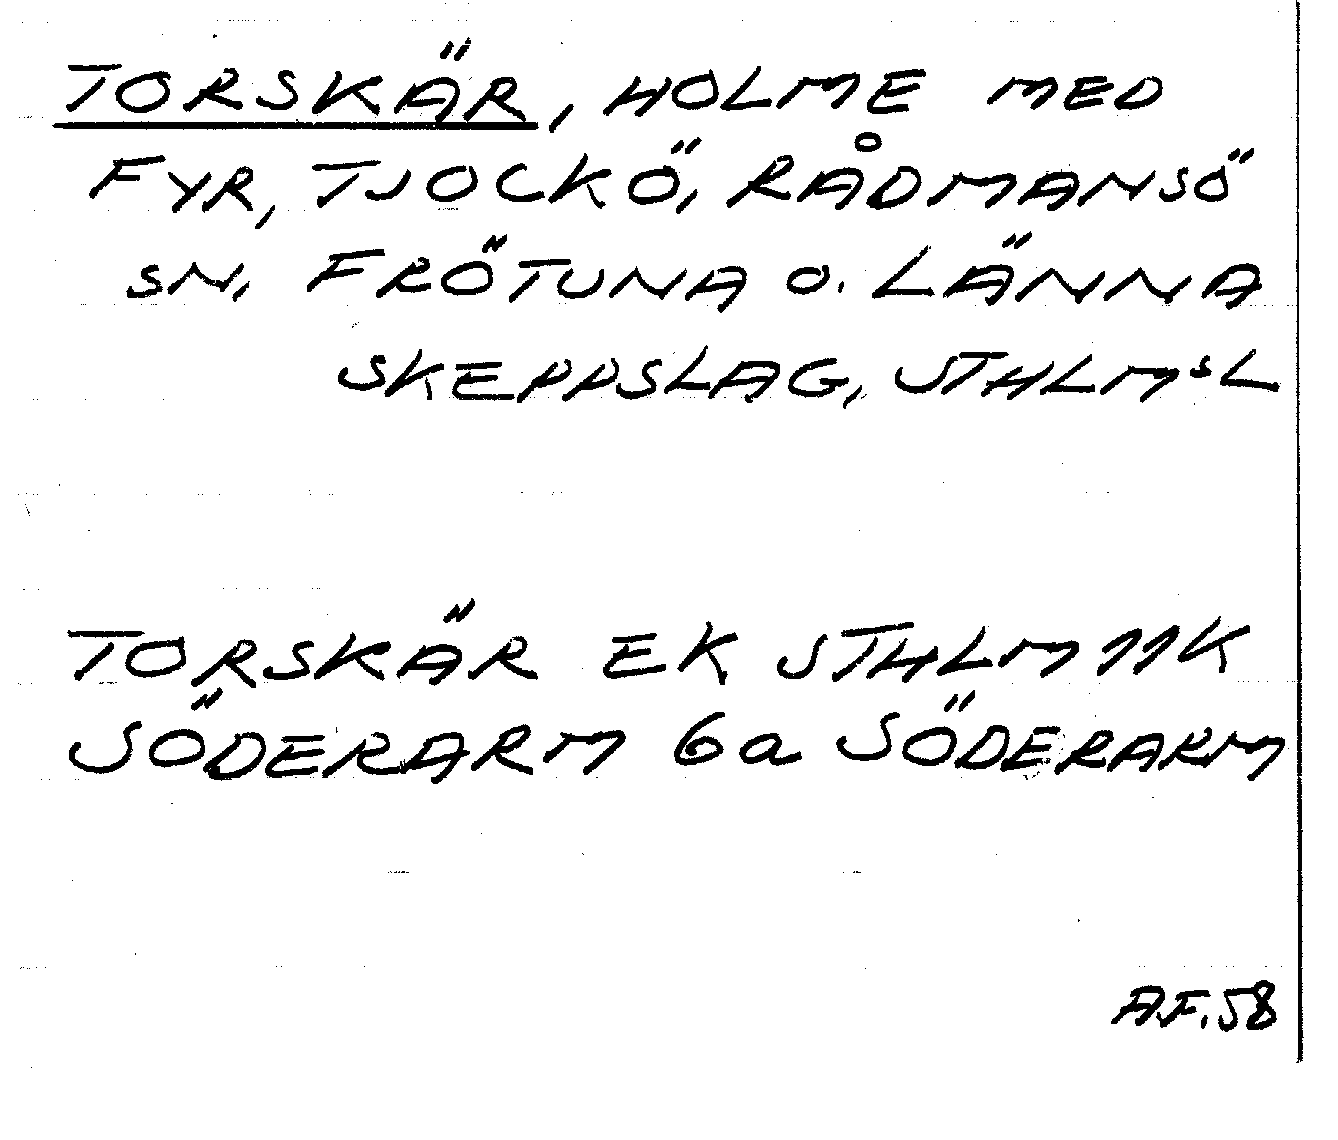 TORSKÄR, HOLME MED
FYR, TJOCKÖ, RÅDMANSÖ
SN, FRÖTUNA O. LÄNNA
SKEPPSLAG, STHLMSL
TORSKÄR EK STHLM 11K
SÖDERARM 6a SÖDERARM
AF.58